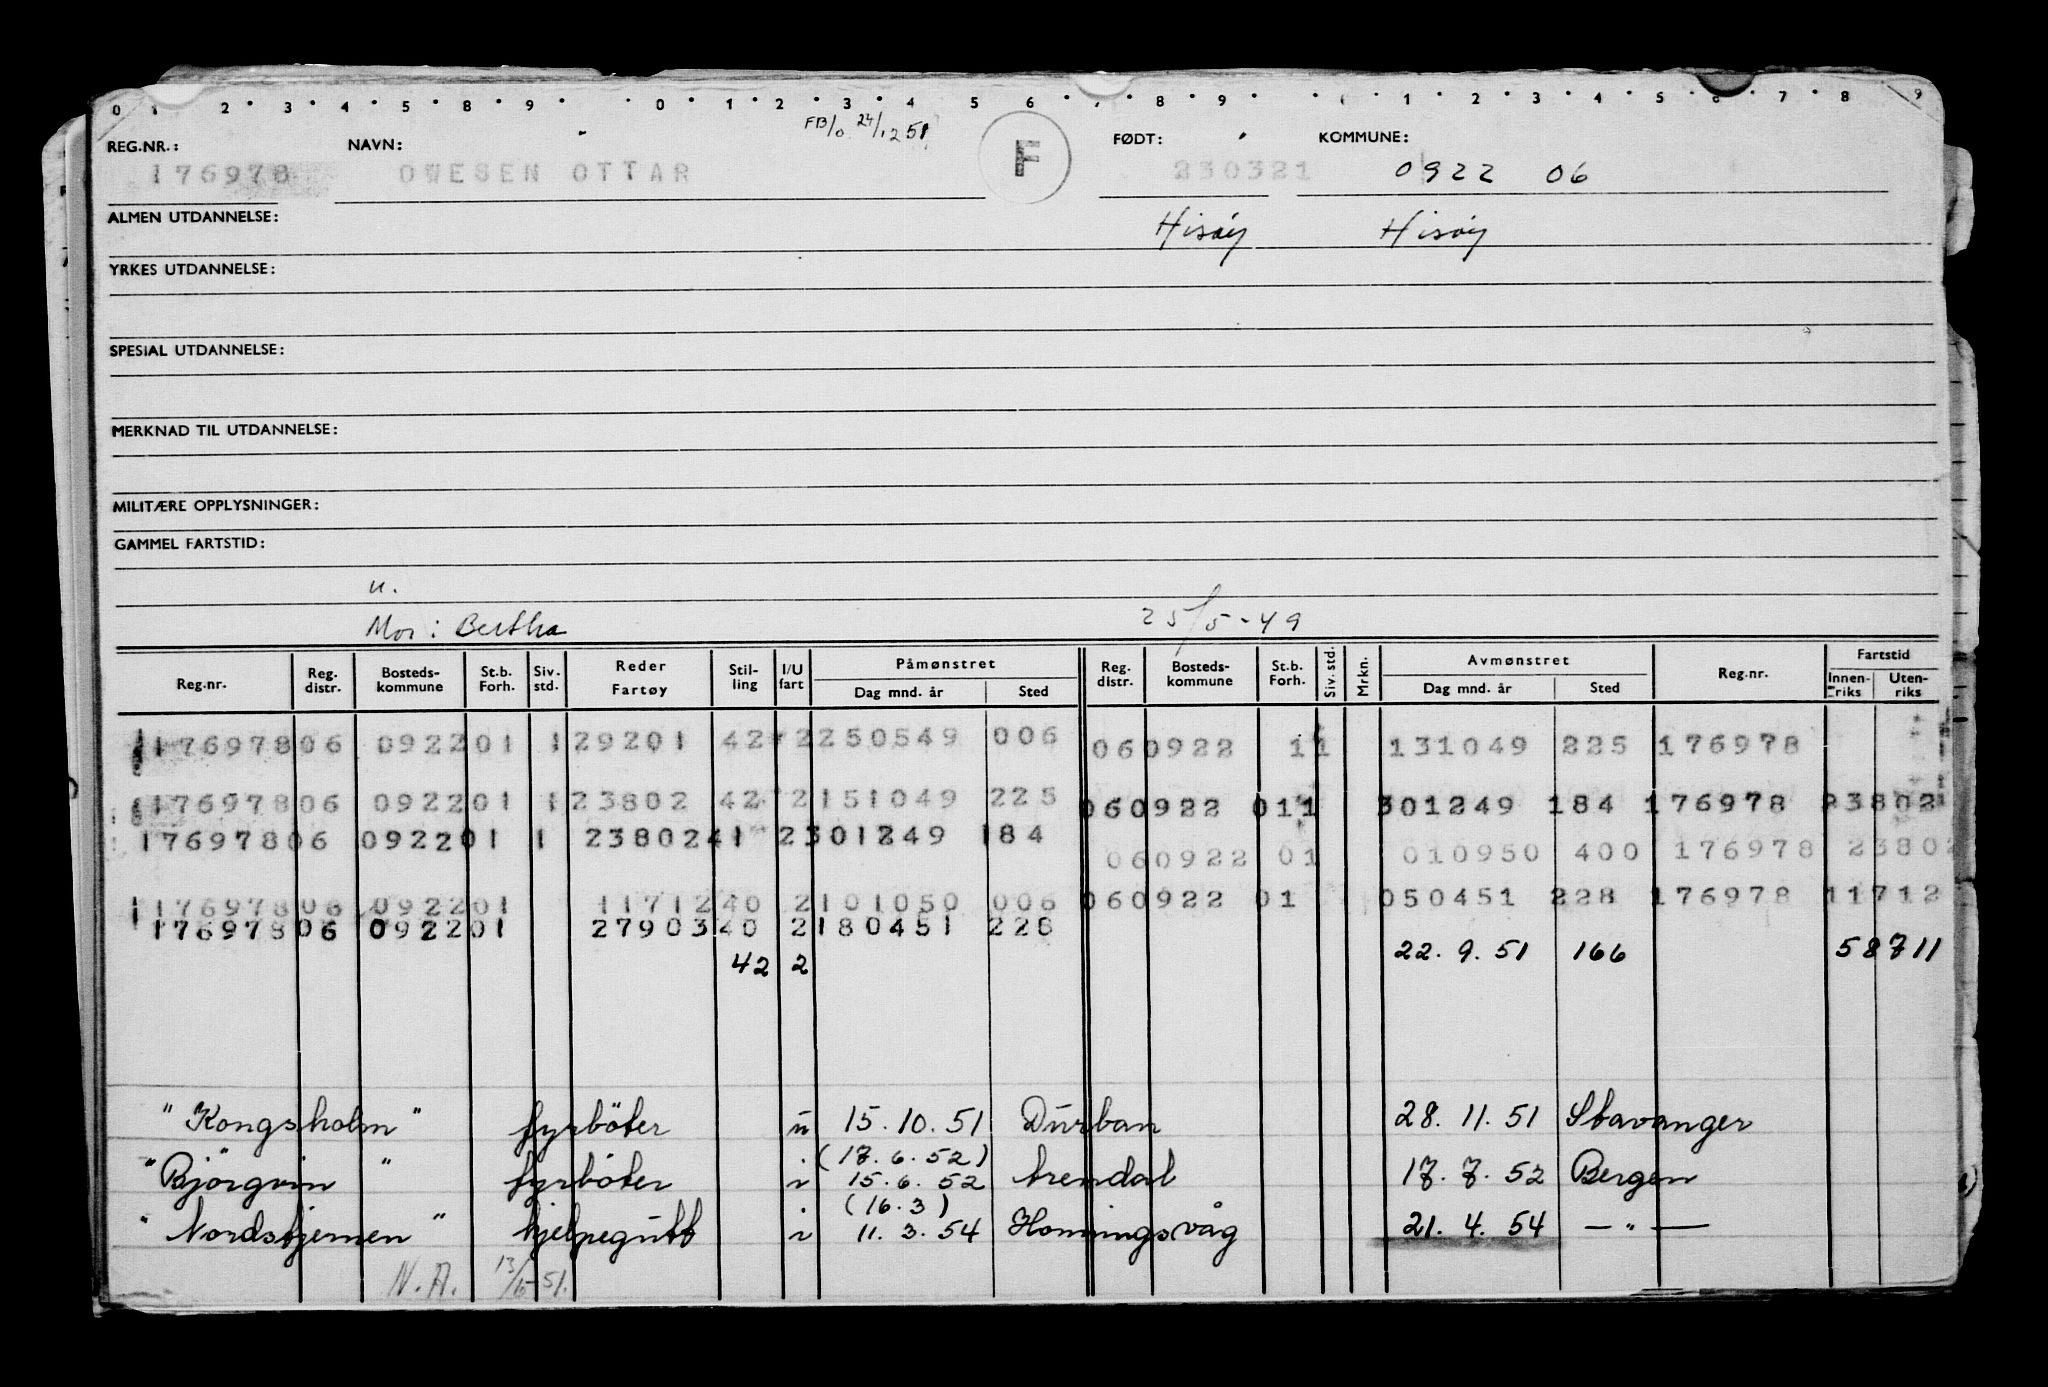 0 1 2 3 4 5 6 8 9 0 1 2 3 4 5 6 7 8 9 1 2 3 4 5 6 7 8 9
FB/0 24/12 51
REG.NR.: NAVN: F FØDT: KOMMUNE:
176978 OWESEN OTTAR 230321 0922 06
ALMEN UTDANNELSE: Hisøy Hisøy
YRKES UTDANNELSE:
SPESIAL UTDANNELSE:
MERKNAD TIL UTDANNELSE:
MILITÆRE OPPLYSNINGER:
GAMMEL FARTSTID:
u.
Mor: Bertha 25/5-49
Reg.nr. Reg. distr. Bosteds-kommune St.b. Forh. Siv. std. Reder Fartøy Stil-ling I/U fart Påmønstret Dag mnd. år Sted Reg. distr. Bosteds-kommune St.b. Forh. Siv. std. Mrkn. Avmønstret Dag mnd. år Sted Reg.nr. Fartstid Innen-riks Uten-riks
176978 06 0922 01 1 29201 42 2 250549 006 06 0922 11 131049 225 176978
176978 06 0922 01 1 23802 42 2 151049 225 06 0922 01 1 301249 184 176978 23802
176978 06 0922 01 1 23802 41 2 301249 184 06 0922 01 010950 400 176978 23802
176978 06 0922 01 11712 40 2 101050 006 06 0922 01 050451 228 176978 11712
176978 06 0922 01 27903 40 2 180451 228
42 2 22.9.51 166 58711
"Kongsholm" fyrböter u 15.10.51 Durban 28.11.51 Stavanger
(17.6.52)
"Björgvin" fyrböter i 15.6.52 Arendal 17.7.52 Bergen
(16.3)
"Nordstjernen" hjelpegutt i 11.3.54 Honningsvåg 21.4.54 — " —
N.A. 13/6-51.